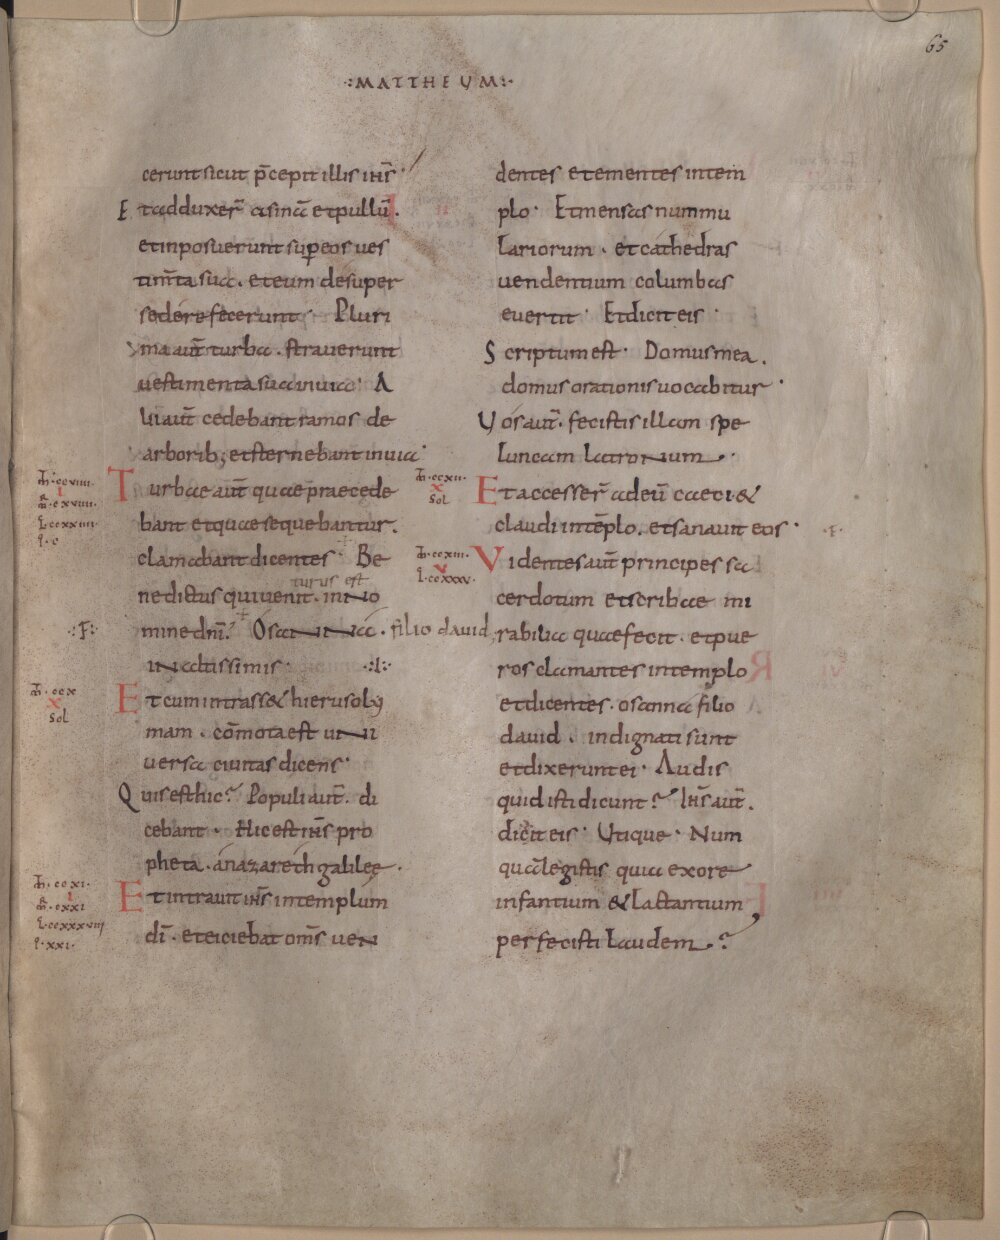 65
·:MATTHEUM:·
cerunt sicut p̄cepit illis ih̄s·
Et adduxer̄ asinā et pullū.
et inposuerunt sup̲ eos ves
tim̄ta sua. et eum desuper
sedere fecerunt· Pluri
ma aut̄ turba. straverunt
vestimenta sua in via· A
lii aut̄ cedebant ramos de
arborib; et sternebant in via·
Turbae aut̄ quae praecede
bant et quae sequebantur.
clamabant dicentes· Be
turus est
nedictus qui venit. in no
mine dn̄i· Osanna. filio david,
in altissimis· ·:l:·
·:F:·
Et cum intrass& hierusoly
mam. com̄ota est uni
versa civitas dicens·
Quis est hic? Populi aut̄. di
cebant· Hic est ih̄s pro
pheta. a nazareth galilee·
Et intravit ih̄s in templum
dī. et eiciebat om̄s ven
m̄·ccviiii·
i
m̄r·cxviiii·
l·ccxxiiii·
i·c
m̄·ccx
x
Sol
m̄·ccxi·
i
m̄r·cxxi
l·ccxxxviiii
i·xxi·
dentes et ementes in tem
plo· Et mensas nummu
lariorum. et cathedras
uendentium columbas
evertit· Et dicit eis·
Scriptum est· Domus mea.
domus orationis vocabitur·
Vos aut̄. fecistis illam spe
luncam latronum.·
Et accesser̄ ad eū caeci &
claudi in tēplo. et sanavit eos·
Videntes aut̄ principes sa
cerdotum et scribae mi
rabilia quae fecit. et pue
ros clamantes in templo
et dicentes. osanna filio
david. indignati sunt
et dixerunt ei· Audis
quid isti dicunt? Ih̄s aut̄.
dicit eis· Utique· Num
quā legistis quia ex ore
infantium & lactantium,
perfecisti laudem.?
m̄·ccxii·
x
Sol
m̄·ccxiii·
v
l·ccxxxv·